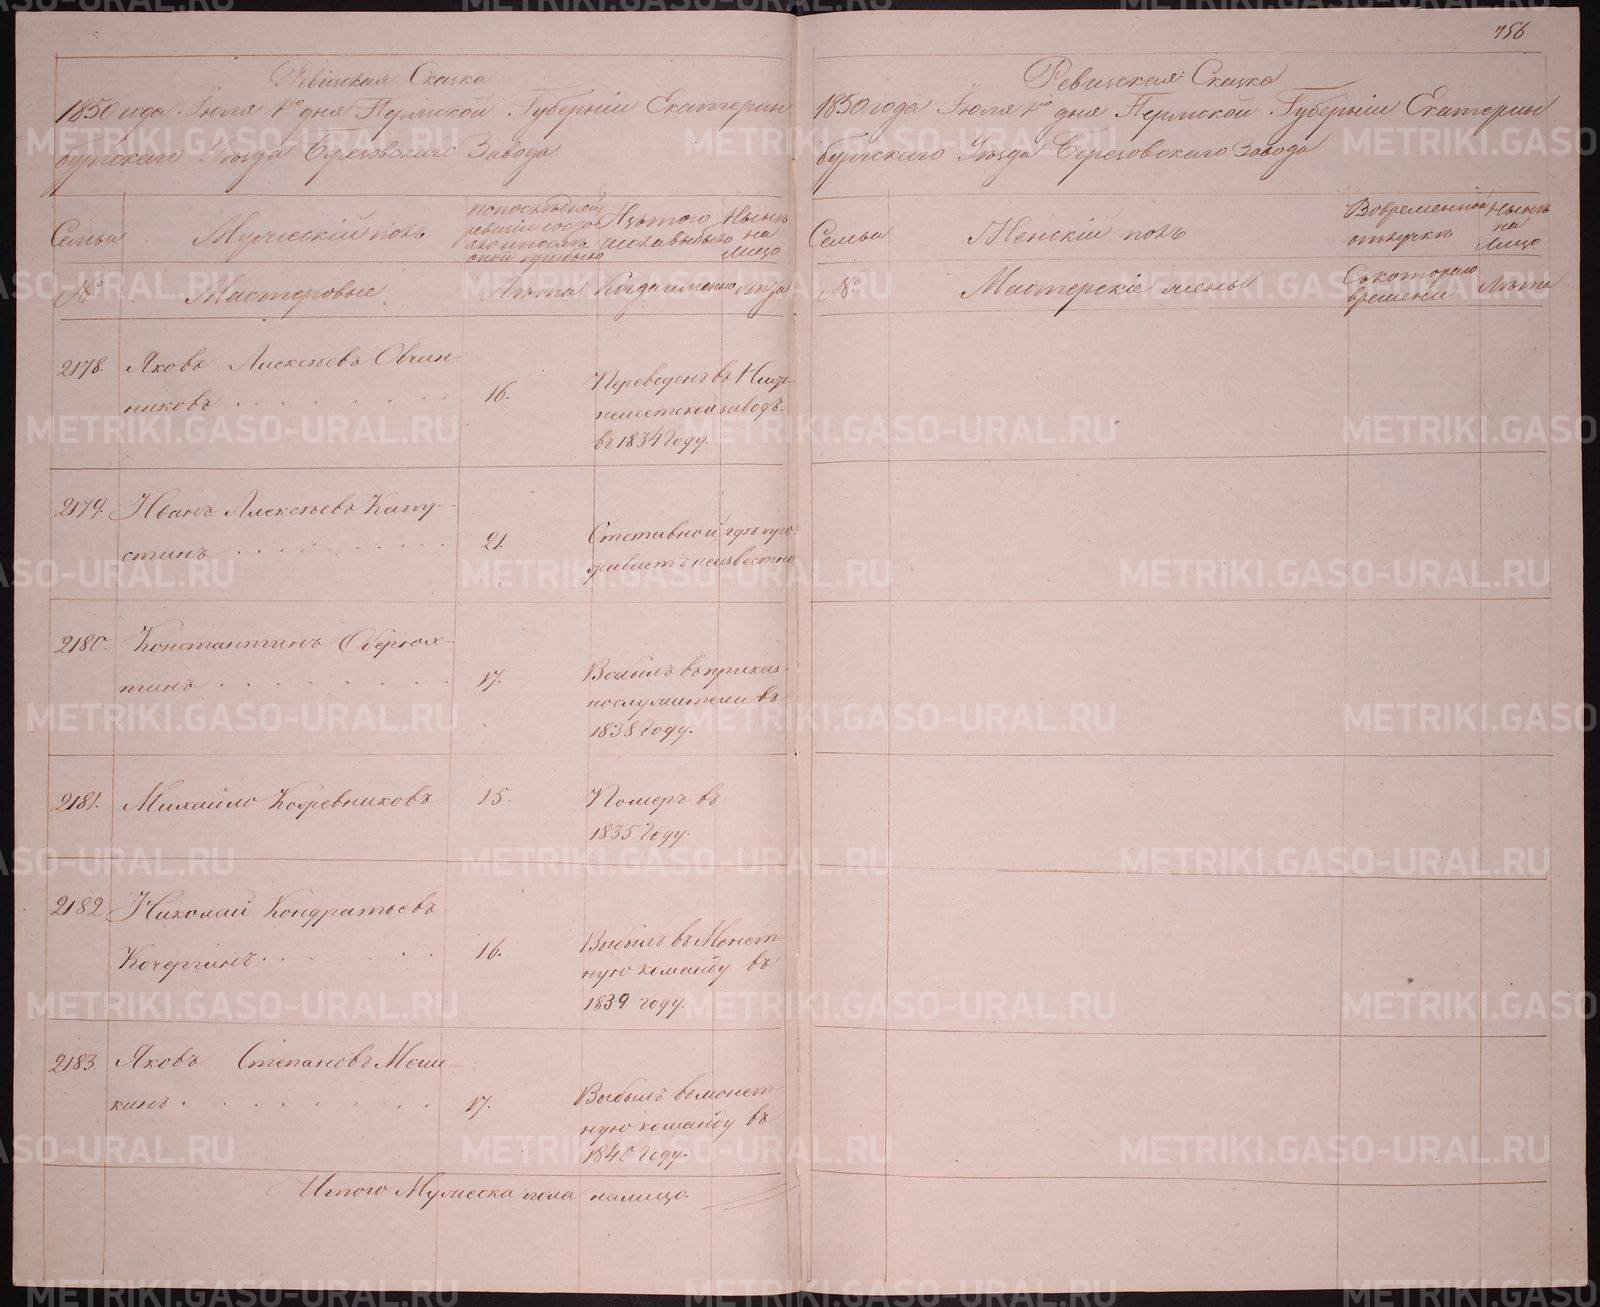 756
Ревизская Сказка
1850 года Июля 1го дня Пермской Губернии Екатерин
бургского Уезда Березовского Завода
Семьи
Мужескiй полъ
по последней
ревизiи состоя
ло и после
оной прибыло
Изъ того
числа выбыло
Ныне
на
лицо
№
Мастеровые
Лета
Когда именно
Лета
2178. Яковъ Алексеевъ Овчин-
никовъ 16.
Переведенъ въ Ниж-
неисетской заводъ
въ 1834 Году.
2179. Иванъ Алексеевъ Капу-
стинъ 21.
Отставной, где про-
живаетъ неизвестно
2180. Константинъ
тинъ 17.
Выбылъ въ приказ-
нослужители въ
1838 Году.
2181. Михайло Кожевниковъ 15.
Померъ въ
1835 Году.
2182. Николай Кондратьевъ
Кочергинъ 16.
Выбылъ въ Монет-
ную команду въ
1839 году.
2183. Яковъ Степановъ Моши-
кинъ 17.
Выбылъ въ монет-
ную команду въ
1840 Году.
Итого Мужеска пола налицо.
Ревизская Сказка
1850 года Июля 1го дня Пермской Губернiи Екатерин
бургскаго Уезда Березовскаго Завода
Семьи
Женскiй полъ
Во временной
отлучке
Ныне
на
Лицо
№
Мастерскiе жены
Съ котораго
времени
Лета
METRIKI.GASO-URAL.RU